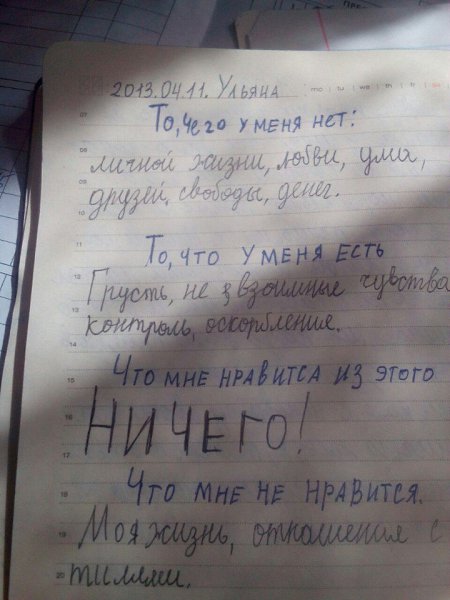 2013.04.11. Ульяна
mo tu we th fr
То, чего у меня нет:
личной жизни, любви, ума,
друзей, свободы, денег.
То, что у меня есть
Грусть, не взоимные чувства
контроль, оскорбление.
Что мне нравится из этого
НИЧЕГО!
Что мне не нравится.
Моя жизнь, отношения с
07
08
09
10
11
12
13
14
15
16
17
18
19
20